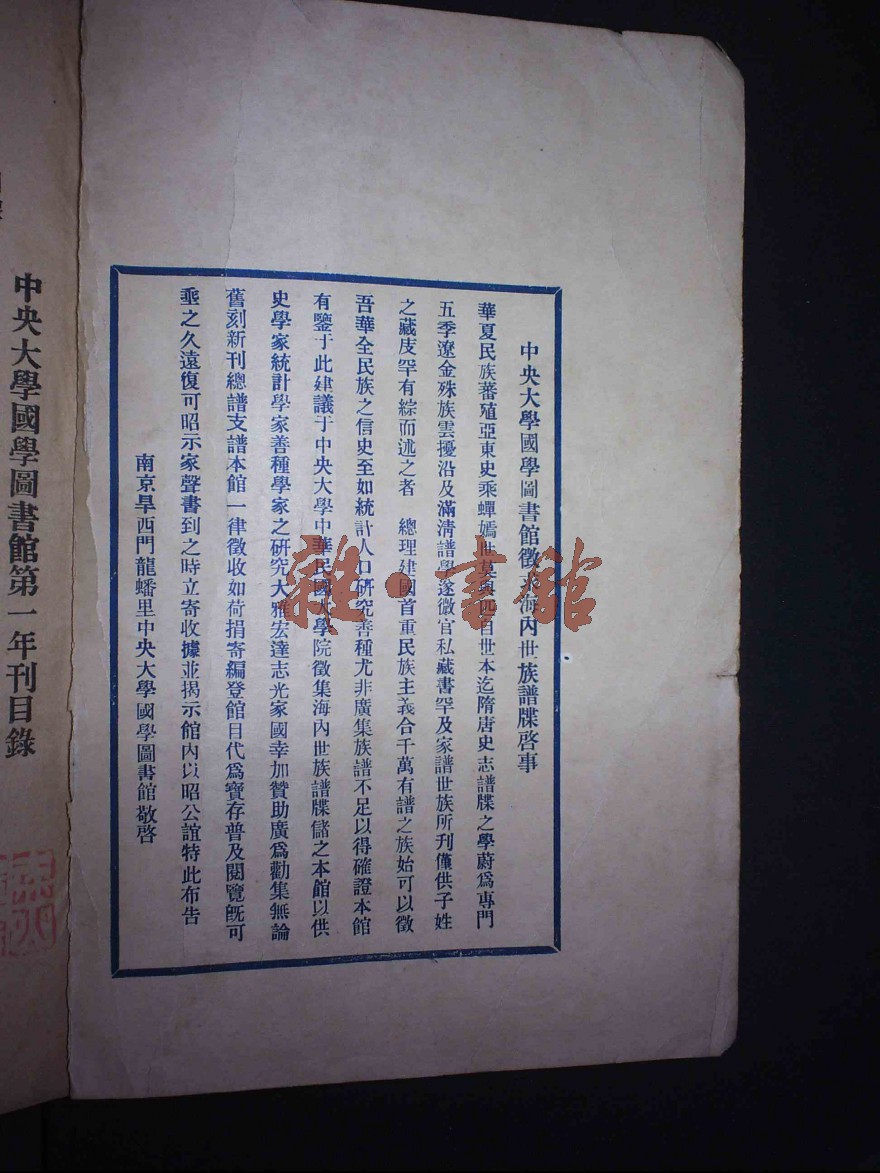 中央大學國學圖書館徵求海內世族譜牒啓事
華夏民族蕃殖亞東史乘蟬嫣世莫與匹自世本迄隋唐史志譜牒之學蔚爲專門
五季遼金殊族雲擾沿及滿淸譜學遂微官私藏書罕及家譜世族所刊僅供子姓
之藏庋罕有綜而述之者 總理建國首重民族主義合千萬有譜之族始可以徵
吾華全民族之信史至如統計人口硏究善種尤非廣集族譜不足以得確證本館
有鑒于此建議于中央大學中華民國大學院徵集海內世族譜牒儲之本館以供
史學家統計學家善種學家之硏究大雅宏達志光家國幸加贊助廣爲勸集無論
舊刻新刊總譜支譜本館一律徵收如荷捐寄編登館目代爲寶存普及閱覽旣可
垂之久遠復可昭示家聲書到之時立寄收據並揭示館內以昭公誼特此布告
南京旱西門龍蟠里中央大學國學圖書館敬啓
中央大學國學圖書館第一年刊目錄
雜·書館